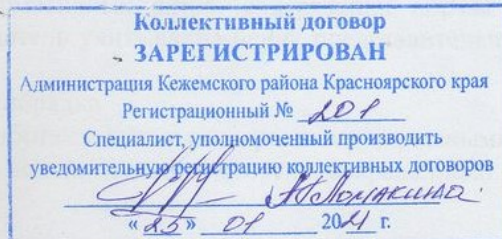 Коллективный договор
ЗАРЕГИСТРИРОВАН
Администрация Кежемского района Красноярского края
Регистрационный № 201
Специалист, уполномоченный производить
уведомительную регистрацию коллективных договоров
Ломакина
«25» 01 2021 г.